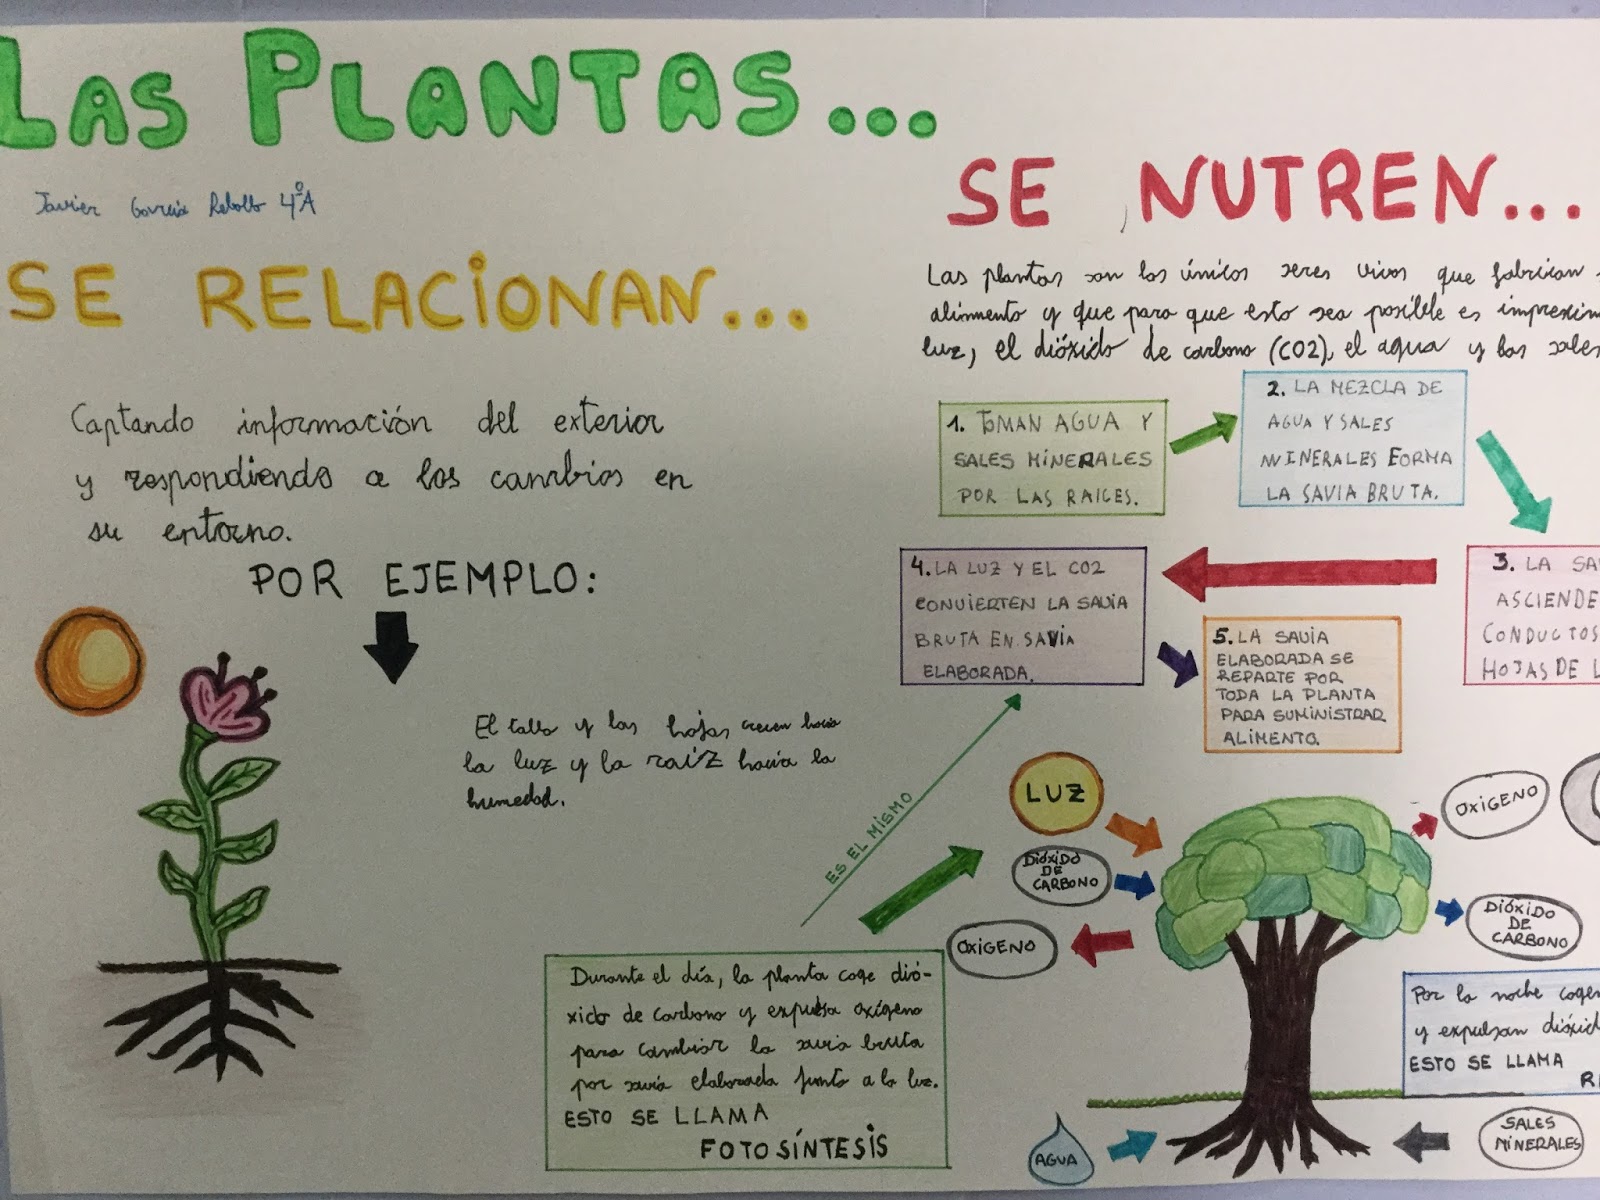 LAS PLANTAS...
Javier García Rebollo 4ºA
SE RELACIONAN...
Captando información del exterior
y respondiendo a los cambios en
su entorno.
POR EJEMPLO:
El tallo y las hojas crecen hacia
la luz y la raíz hacia la
humedad.
SE NUTREN...
Las plantas son los únicos seres vivos que fabrican
alimento y que para que esto sea posible es
luz, el dióxido de carbono (CO2), el agua y las sales
1. TOMAN AGUA Y
SALES MINERALES
POR LAS RAICES.
2. LA MEZCLA DE
AGUA Y SALES
MINERALES FORMA
LA SAVIA BRUTA.
3. LA
ASCIENDE
CONDUCTOS
HOJAS DE
4. LA LUZ Y EL CO2
CONVIERTEN LA SAVIA
BRUTA EN SAVIA
ELABORADA.
5. LA SAVIA
ELABORADA SE
REPARTE POR
TODA LA PLANTA
PARA SUMINISTRAR
ALIMENTO.
ES EL MISMO
LUZ
DIÓXIDO
DE
CARBONO
OXÍGENO
OXÍGENO
DIÓXIDO
DE
CARBONO
Durante el día, la planta coge dió-
xido de carbono y expulsa oxígeno
para cambiar la savia bruta
por savia elaborada junto a la luz.
ESTO SE LLAMA
FOTOSÍNTESIS
Por la noche
y expulsan
ESTO SE LLAMA
AGUA
SALES
MINERALES